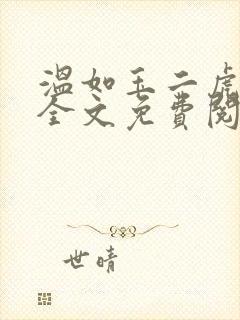 温如玉二虎
全文免費閱
世晴